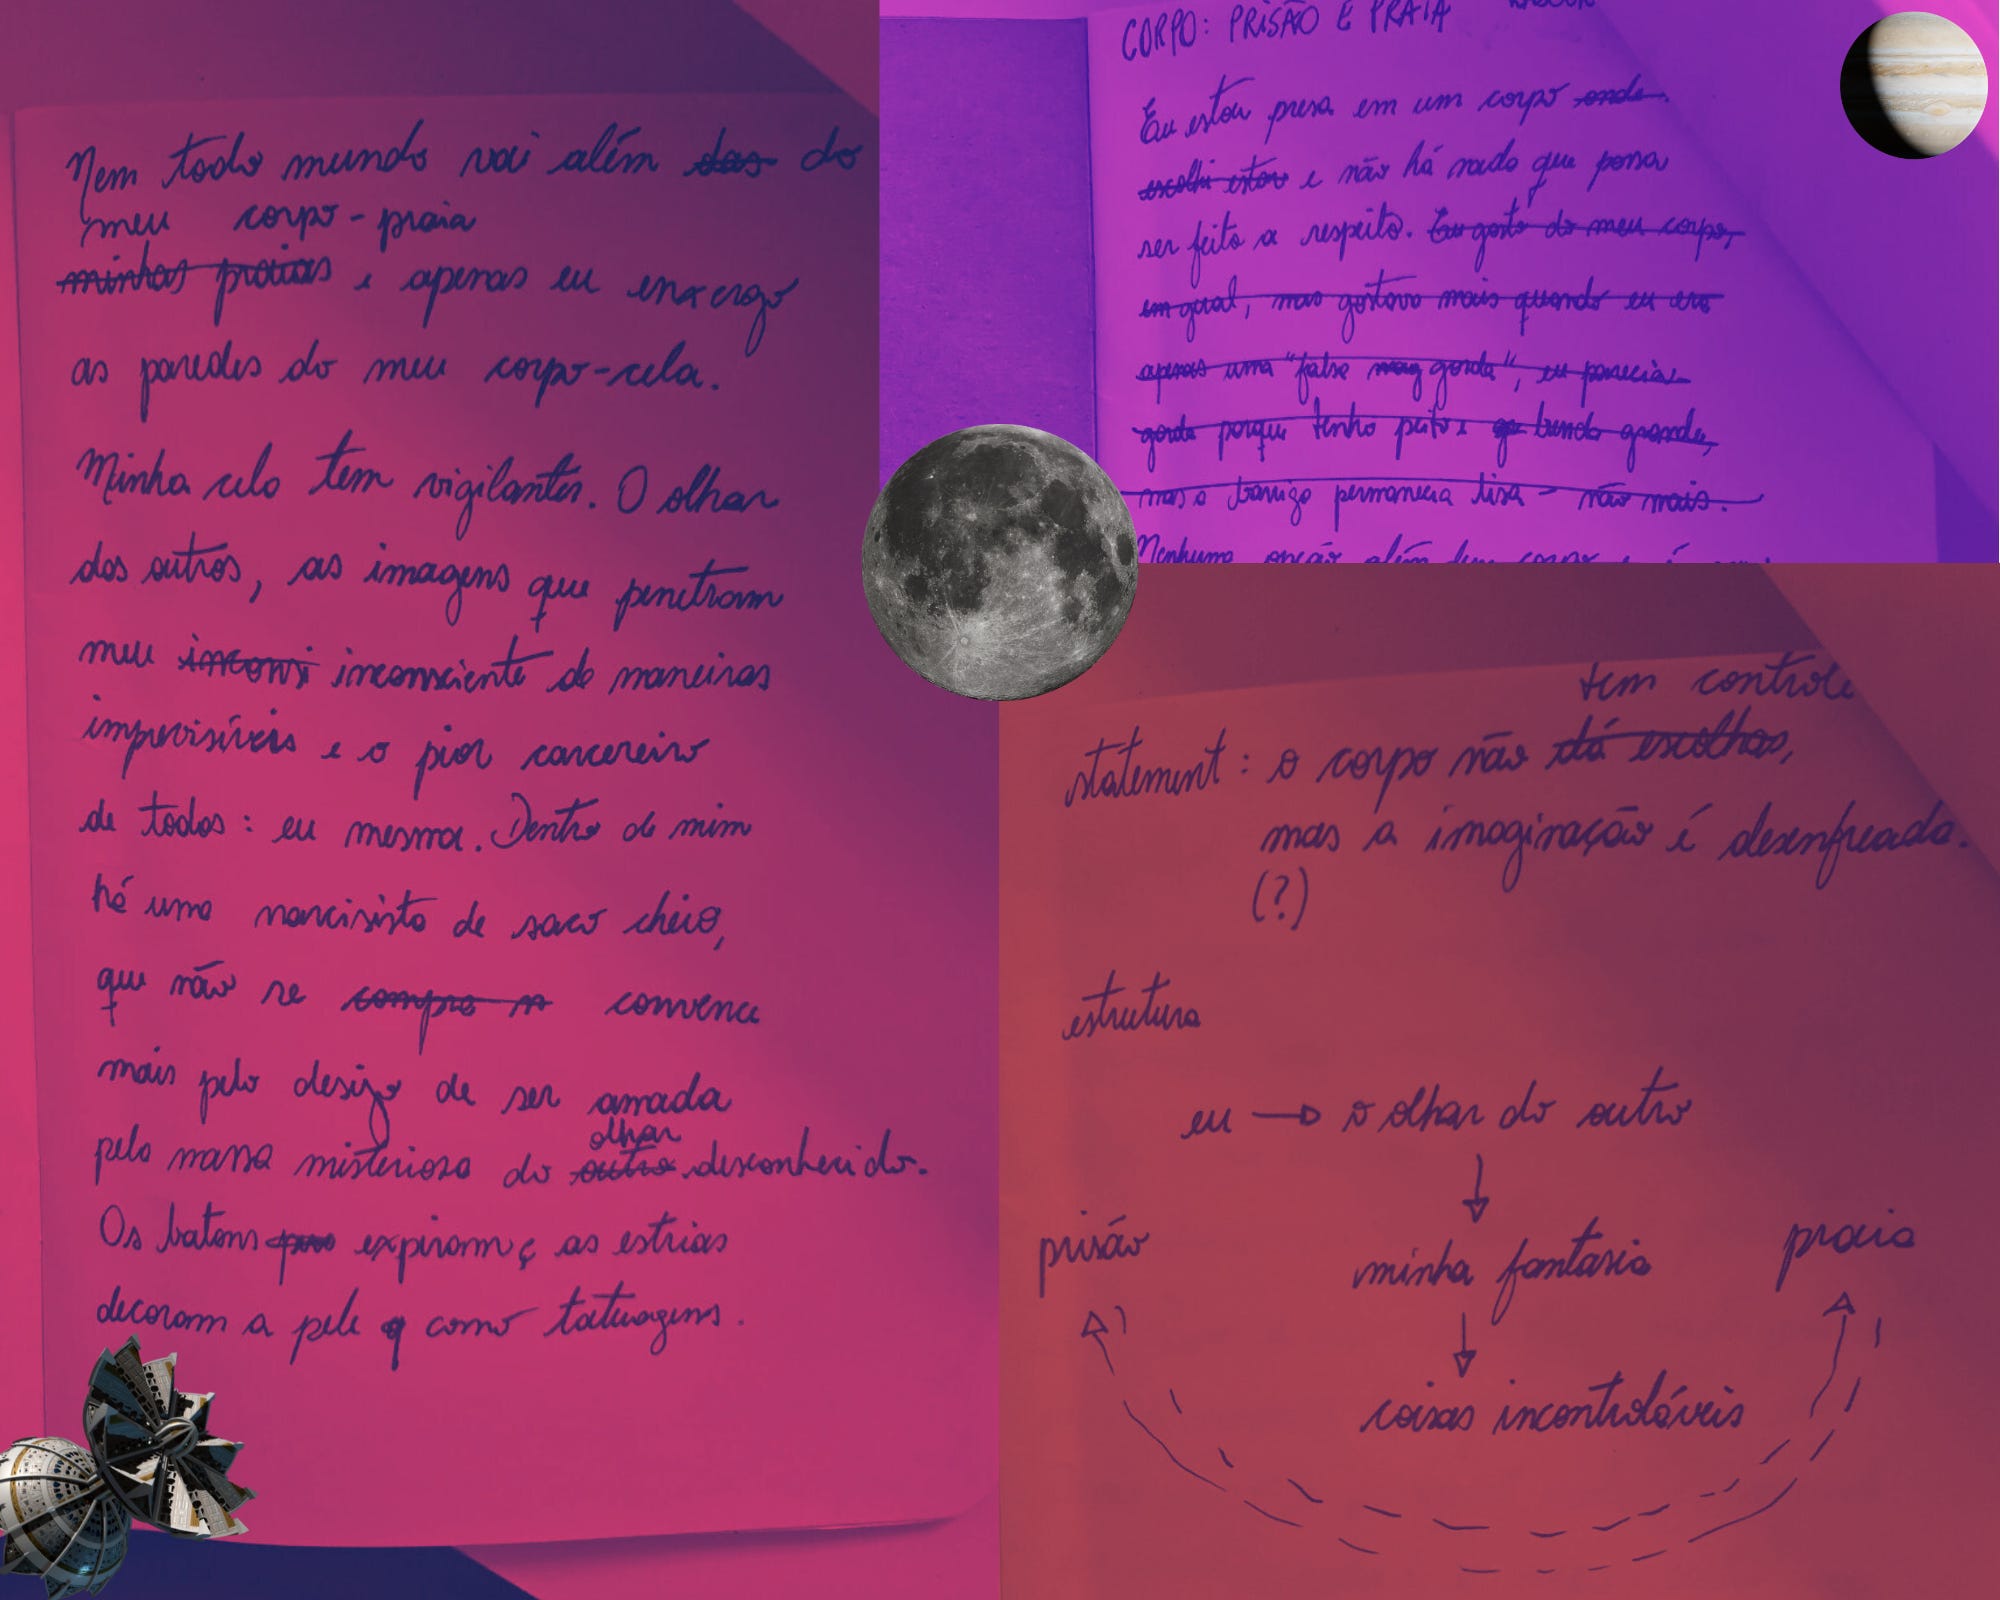 Nem todo mundo vai além das do
meu corpo-praia
minhas praias e apenas eu enxergo
as paredes do meu corpo-cela.
Minha cela tem vigilantes. O olhar
dos outros, as imagens que penetram
meu inconsi inconsciente de maneiras
imprevisíveis e o pior carcereiro
de todos: eu mesma. Dentro de mim
há uma narcisista de saco cheio,
que não se compra n convence
mais pelo desejo de ser amada
olhar
pela massa misteriosa do outro desconhecido.
Os batons expiram e as estrias
decoram a pele como tatuagens.
CORPO: PRISÃO E PRAIA
Eu estou presa em um corpo onde
escolhi estar e não há nada que possa
ser feito a respeito. Eu gosto do meu corpo,
em geral, mas gostava mais quando eu era
apenas uma "falsa mag gorda", eu parecia
gorda porque tenho peito e bunda grande,
mas a barriga permanecia lisa - não mais.
Nenhuma opção além desse corpo e é
tem controle
statement: o corpo não dá escolhas,
mas a imaginação é desenfreada.
(?)
estrutura
eu → o olhar do outro
prisão
minha fantasia
praia
coisas incontroláveis